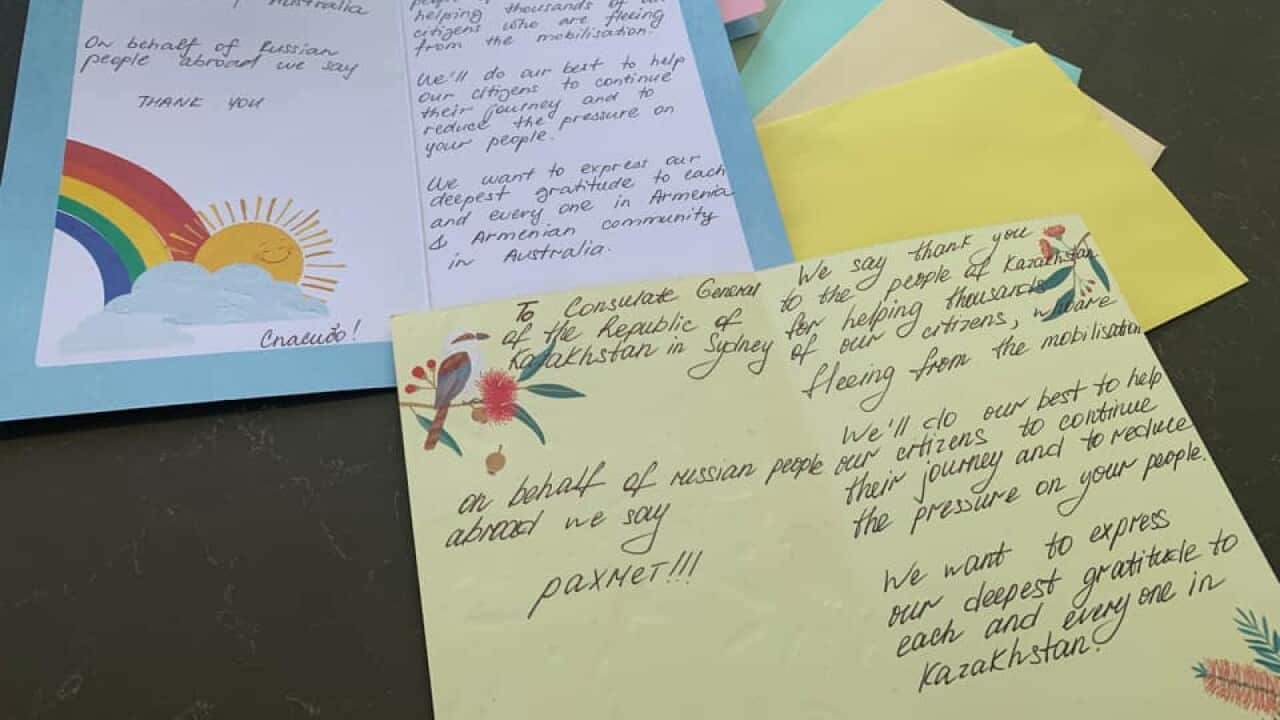 Australia
On behalf of Russian
people abroad we say
THANK YOU
Спасибо!
helping thousands of our
citizens who are fleeing
from the mobilisation.
We'll do our best to help
our citizens to continue
their journey and to
reduce the pressure on
your people.
We want to express our
deepest gratitude to each
and every one in Armenia
& Armenian community
in Australia.
To Consulate General
of the Republic of
Kazakhstan in Sydney
on behalf of russian people
abroad we say
рахмет!!!
We say thank you
to the people of Kazakhstan
for helping thousands
of our citizens, who are
fleeing from the mobilisation
We'll do our best to help
our citizens to continue
their journey and to reduce
the pressure on your people.
We want to express
our deepest gratitude to
each and every one in
Kazakhstan.